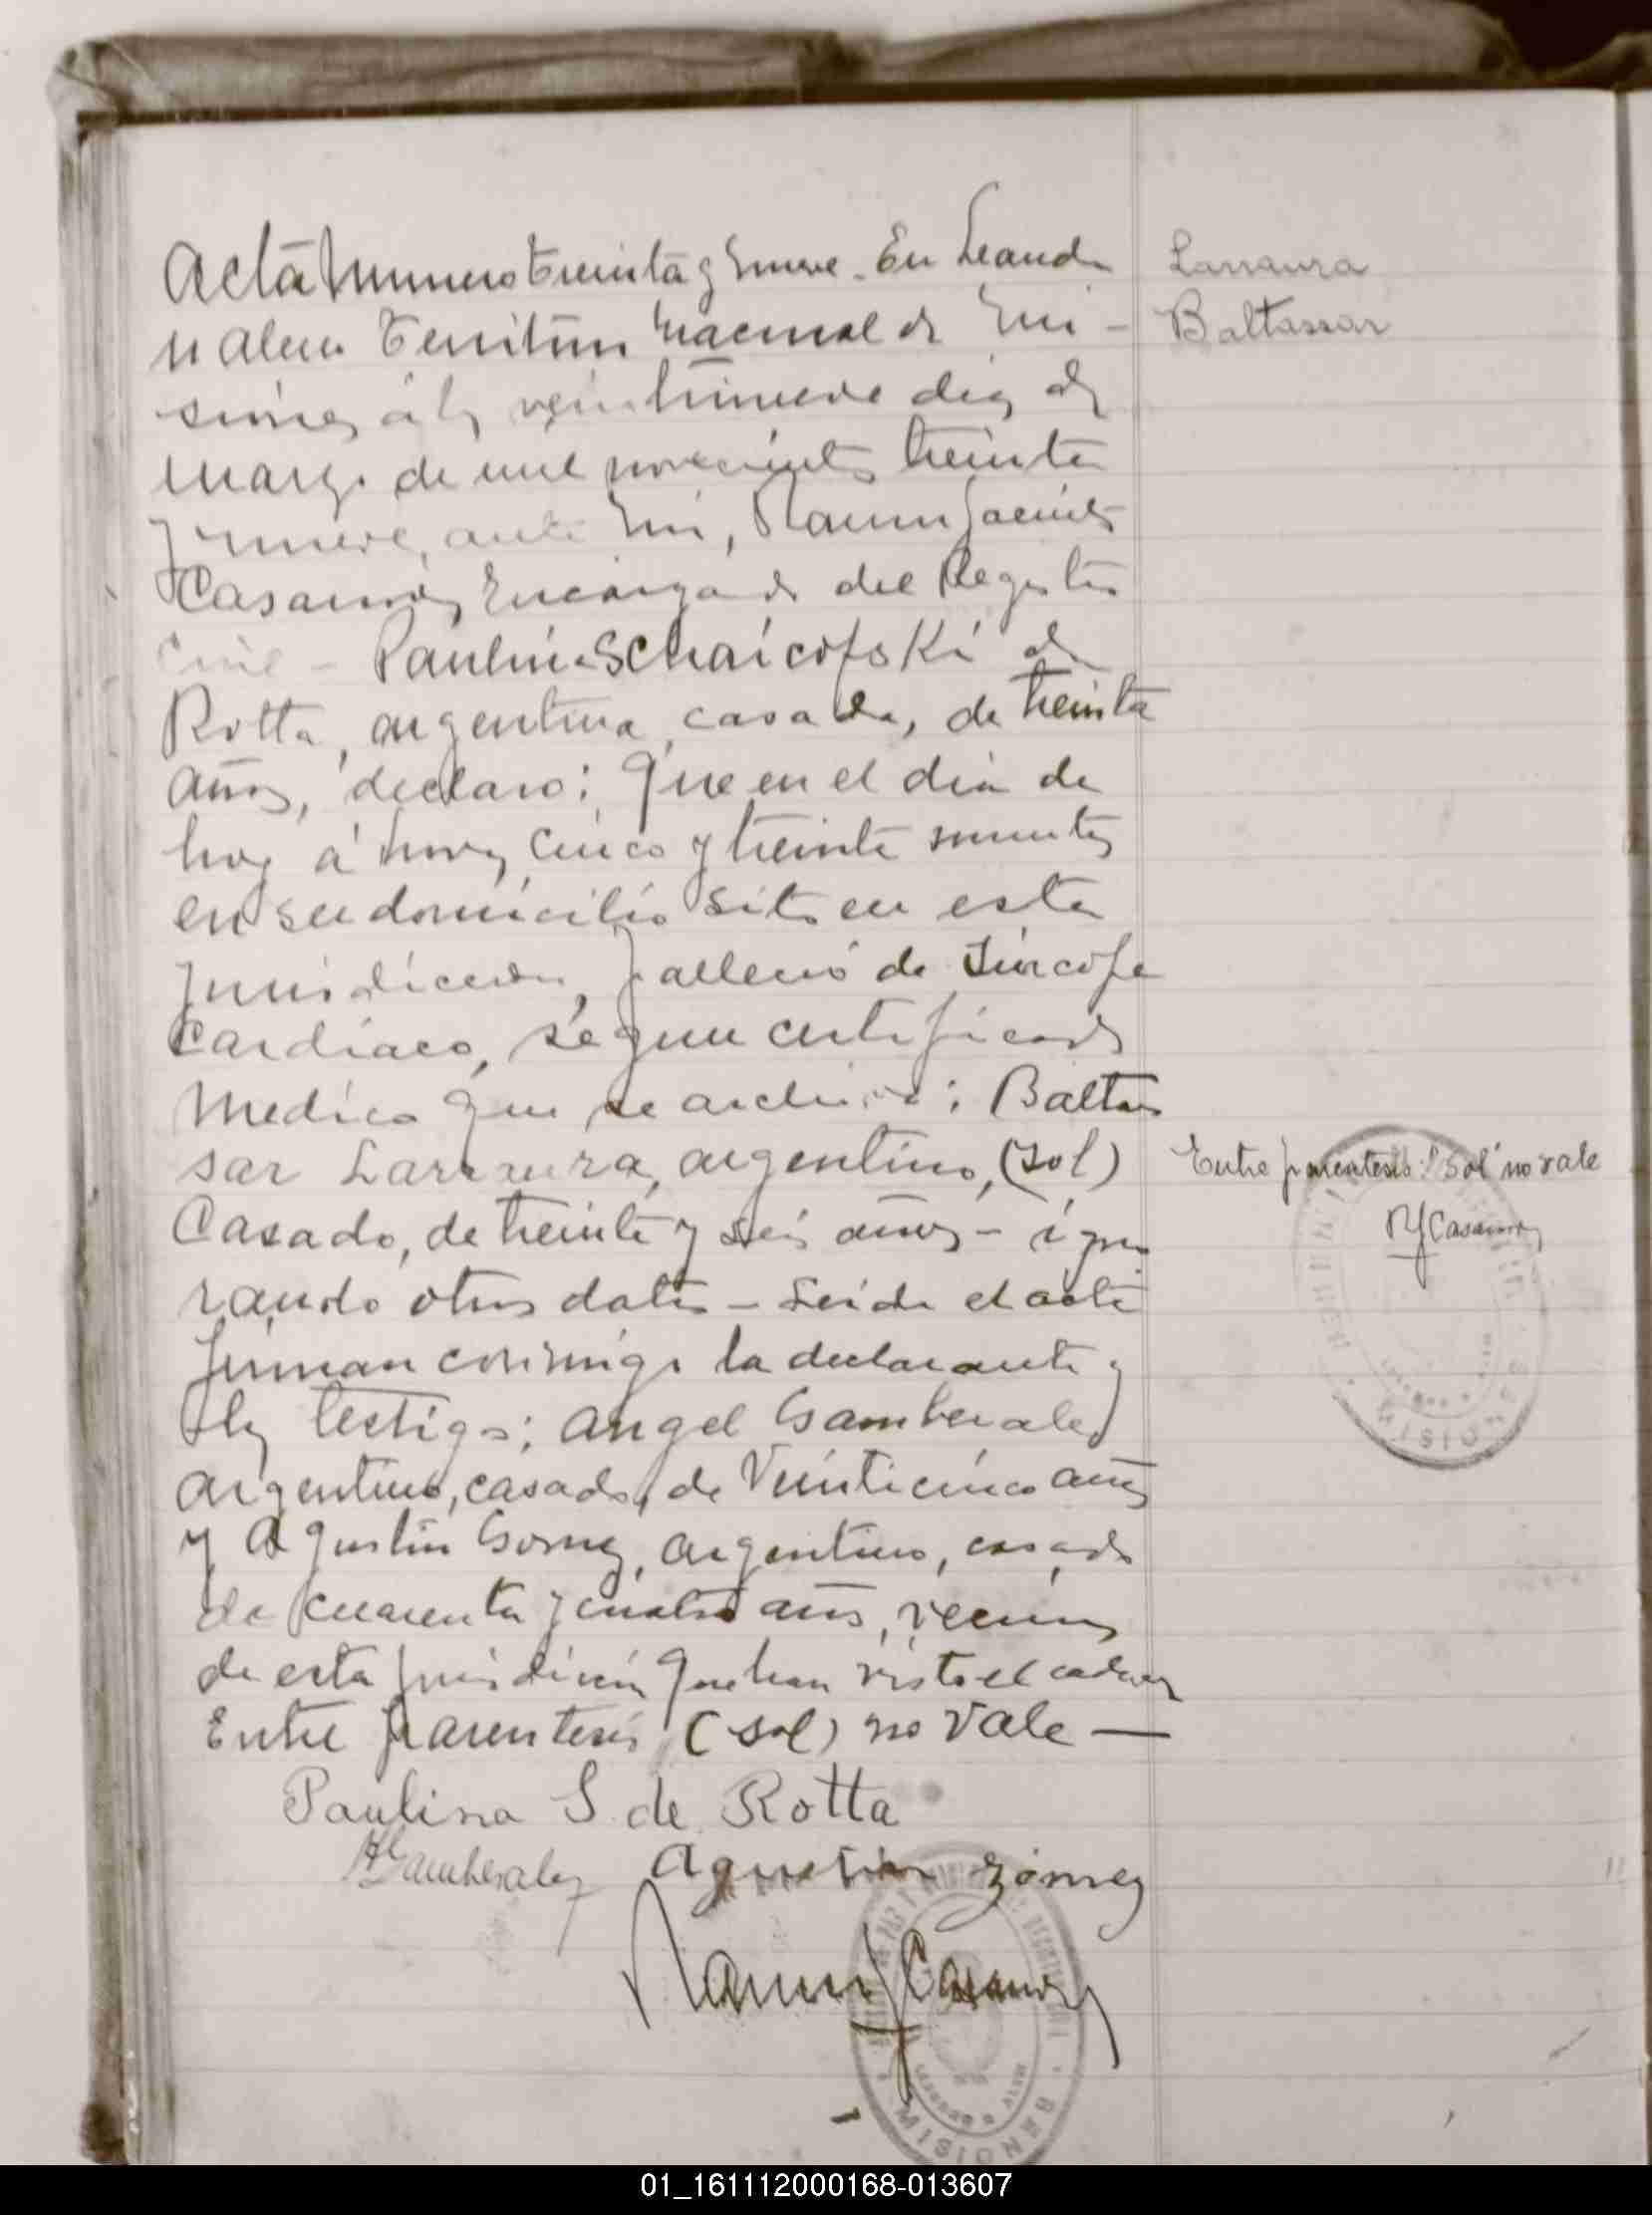 Acta Numero treinta y nueve. En Leandro
N Alem Territorio Nacional de Mi-
siones á los veintinueve dias de
marzo de mil novecientos treinta
y nueve, ante mi, Ramon Jacinto
Casamós Encargado del Registro
Civil - Paulina Schaicofski de
Rotta, argentina, casada, de treinta
años, declaro: Que en el dia de
hoy á horas cinco y treinta minutos
en su domicilio sito en esta
Jurisdiccion, fallecio de Sincope
Cardiaco, segun certificado
Medico que se archiva: Balta
sar Larraura, argentino, (sol)
Casado, de treinta y seis años - igno
rando otros datos - Leida el acta
firman conmigo la declarante y
los testigos: Angel Gamberales
argentino, casado, de Veinticinco años
y Agustin Gomez, argentino, casado
de cuarenta y cuatro años, vecinos
de esta jurisdicción que han visto el cadaver
Entre parentesis (sol) no vale —
Paulina S. de Rotta
AGamberales Agustin Gómez
Ramon J Casamós
Larraura
Baltassar
Entre parentesis: "Sol" no vale
RJCasamos
MISIONES
LEANDRO N. ALEM
MISIONES
01_161112000168-013607